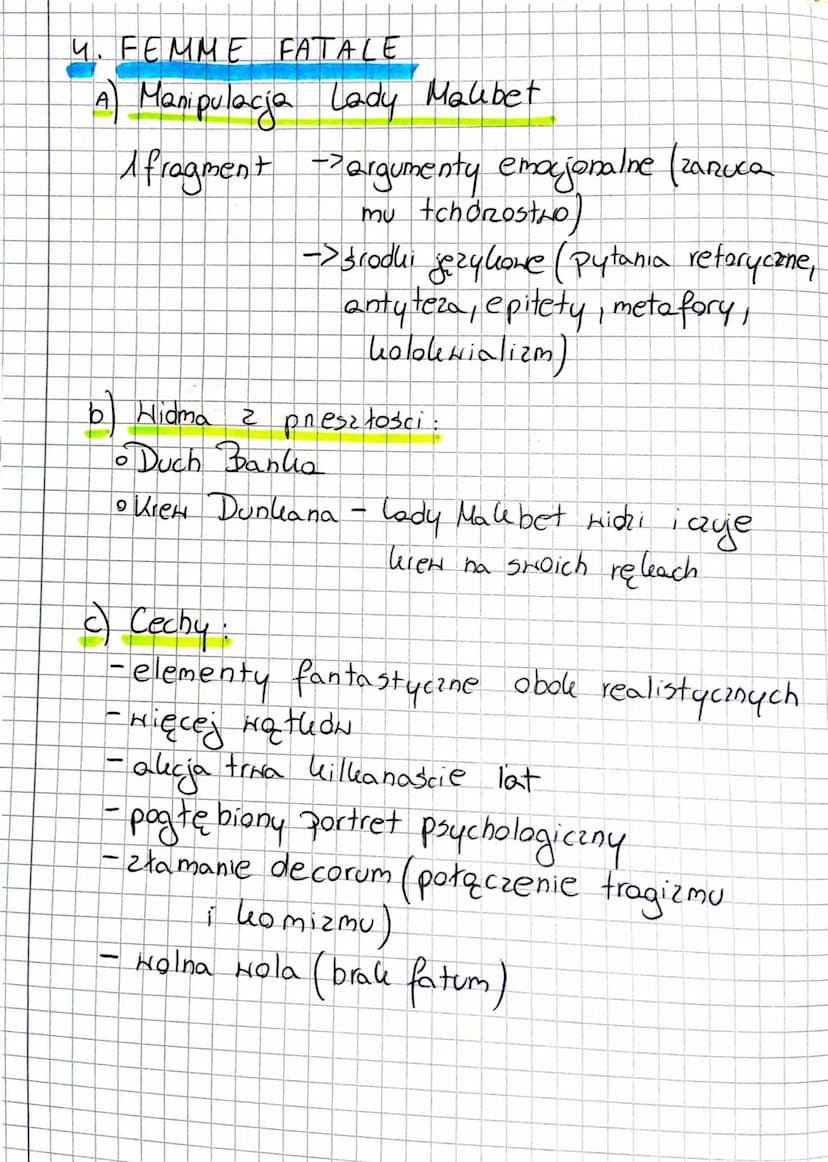 4. FEMME FATALE
A) Manipulacja Lady Makbet
1 fragment -> argumenty emocjonalne (zarzuca
mu tchórzostwo)
-> środki językowe (pytania retoryczne,
antyteza, epitety, metafory,
kolokwializm)
b) Widma z przeszłości:
o Duch Banka
o Krew Dunkana - Lady Makbet widzi i czuje
krew na swoich rękach
c) Cechy:
- elementy fantastyczne obok realistycznych
- więcej wątków
- akcja trwa kilkanaście lat
- pogłębiony portret psychologiczny
- złamanie decorum (połączenie tragizmu
i komizmu)
- wolna wola (brak fatum)